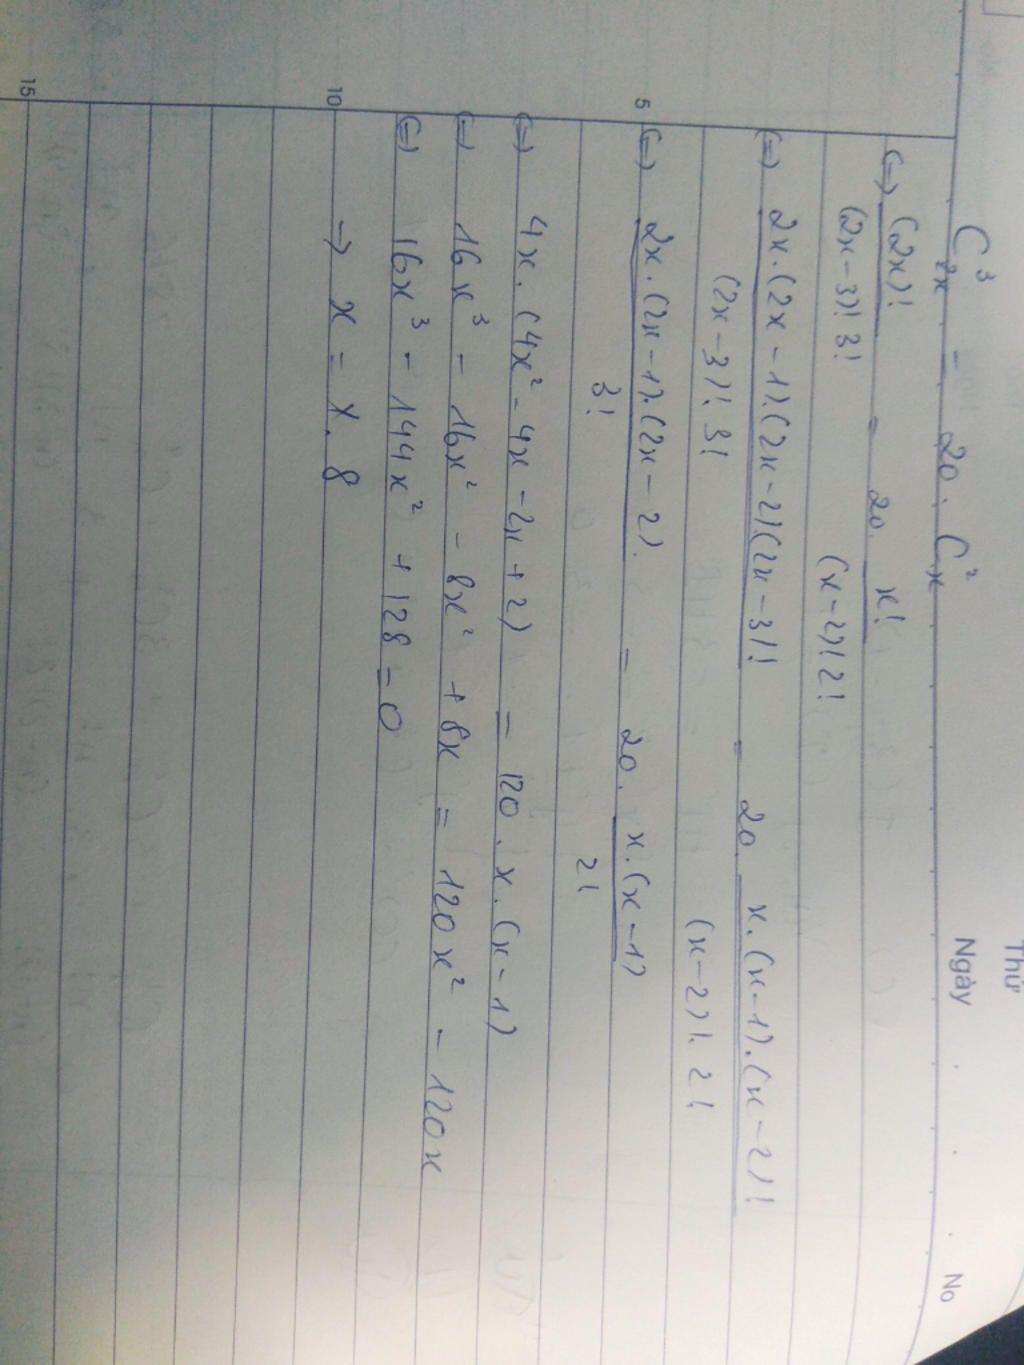 Thứ
Ngày . . . No
C³₂ₓ = 20 . C²ₓ
(=) (2x)! / (2x-3)! 3! = 20. x! / (x-2)! 2!
(=) 2x.(2x-1).(2x-2)(2x-3)! / (2x-3)! 3! = 20. x.(x-1).(x-2)! / (x-2)!. 2!
5 (=) 2x.(2x-1).(2x-2). / 3! = 20. x.(x-1) / 2!
(=) 4x.(4x²-4x-2x+2) = 120 . x.(x-1)
(=) 16x³ - 16x² - 8x² + 8x = 120x² - 120x
(=) 16x³ - 144x² + 128 = 0
10 → x = 1. 8
15